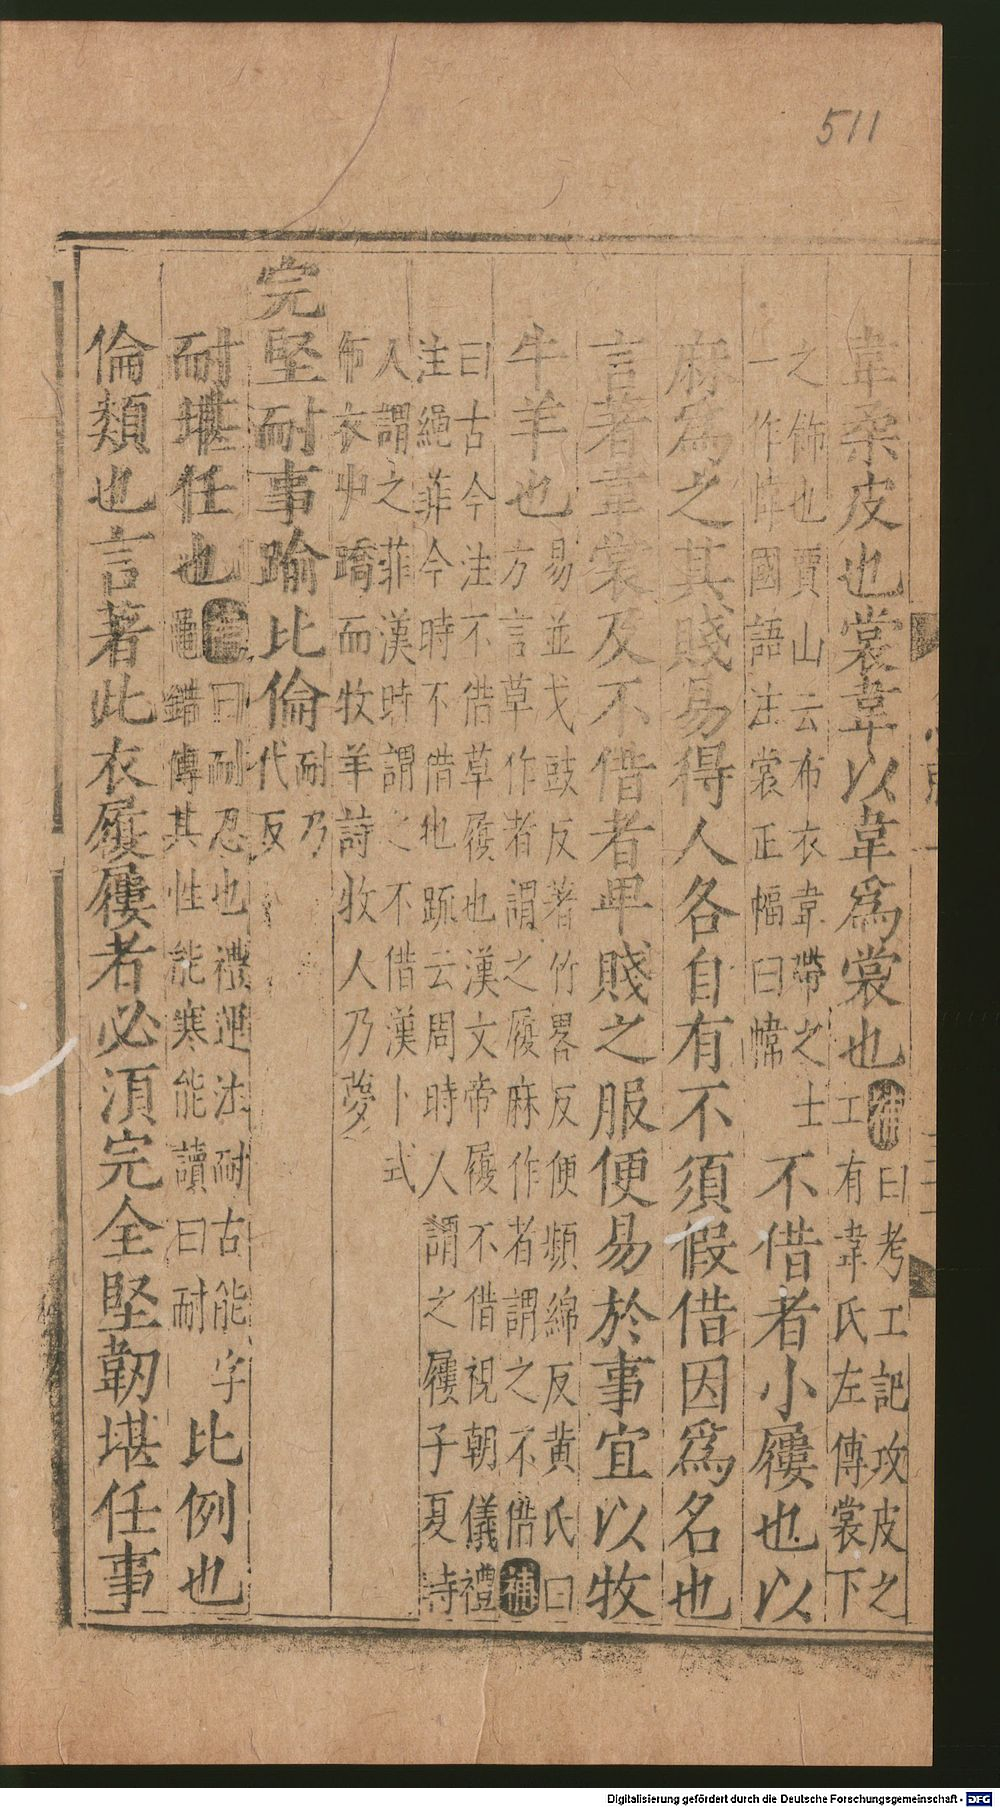 511
韋柔皮也裳韋以韋爲裳也補曰考工記攻皮之
工有韋氏左傳裳下
之飾也賈山云布衣韋帶之士
一作幃國語注裳正幅曰幃
不借者小屨也以
麻爲之其賤易得人各自有不須假借因爲名也
言著韋裳及不借者卑賤之服便易於事宜以牧
牛羊也易並弋豉反著竹畧反便頻綿反黃氏曰
方言草作者謂之履麻作者謂之不借補
曰古今注不借草履也漢文帝履不借視朝儀禮
注繩菲今時不借也疏云周時人謂之屨子夏詩
人謂之菲漢時謂之不借漢卜式
布衣屮蹻而牧羊詩牧人乃夢
完堅耐事踰比倫耐乃
代反
耐堪任也補曰耐忍也禮運法耐古能字
鼂錯傳其性能寒能讀曰耐
比例也
倫類也言著此衣履屨者必須完全堅韌堪任事
Digitalisierung gefördert durch die Deutsche Forschungsgemeinschaft - DFG